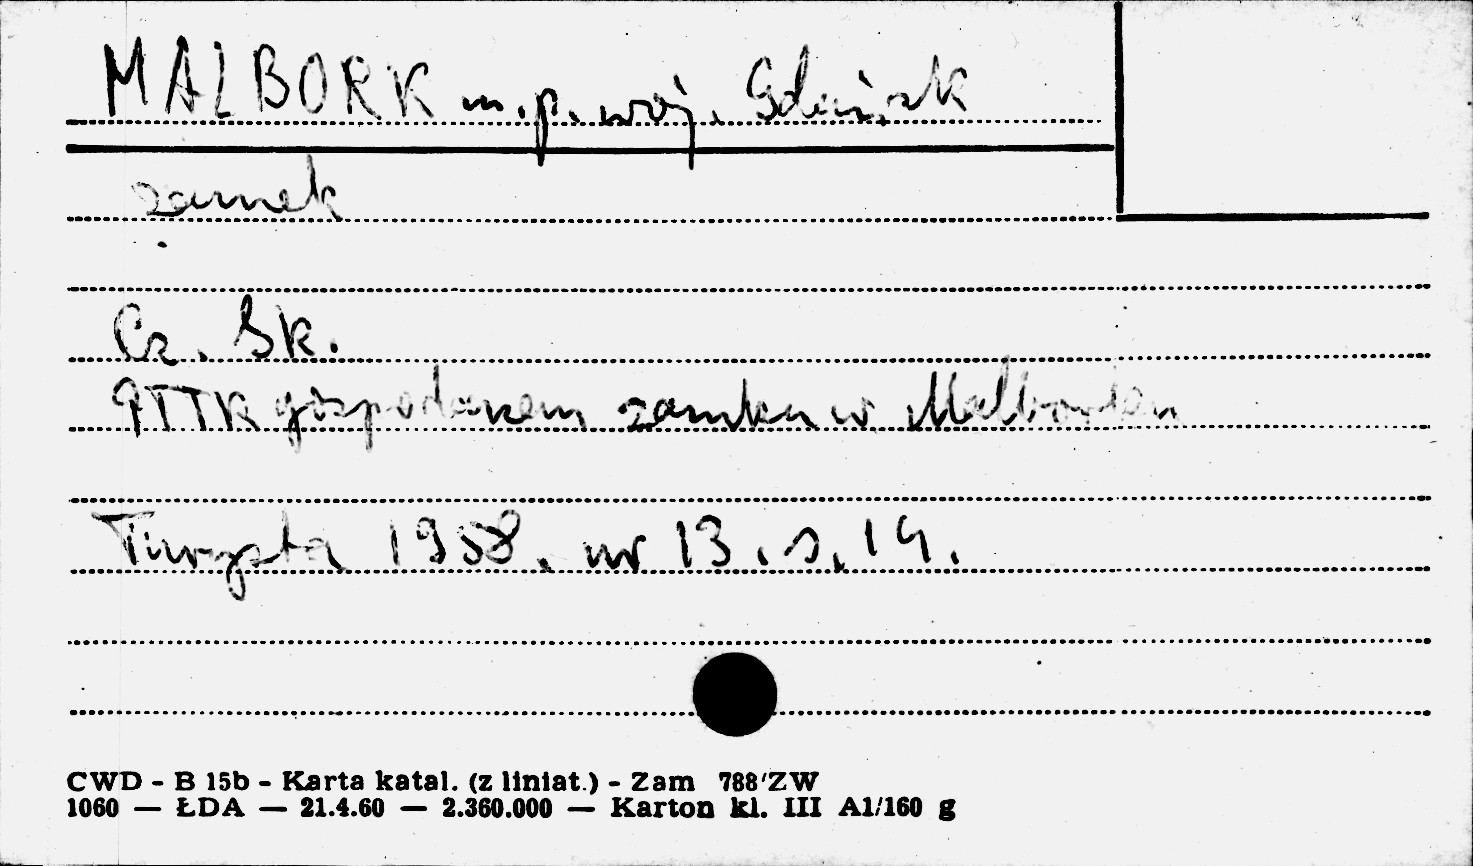 MALBORK m. p. woj. Gdańsk
zamek
Cz. Sk.
PTTK gospodarzem zamku w Malborku
Turysta 1958. nr 13. s. 14.
CWD - B 15b - Karta katal. (z liniat.) - Zam 788/ZW
1060 — ŁDA — 21.4.60 — 2.360.000 — Karton kl. III A1/160 g